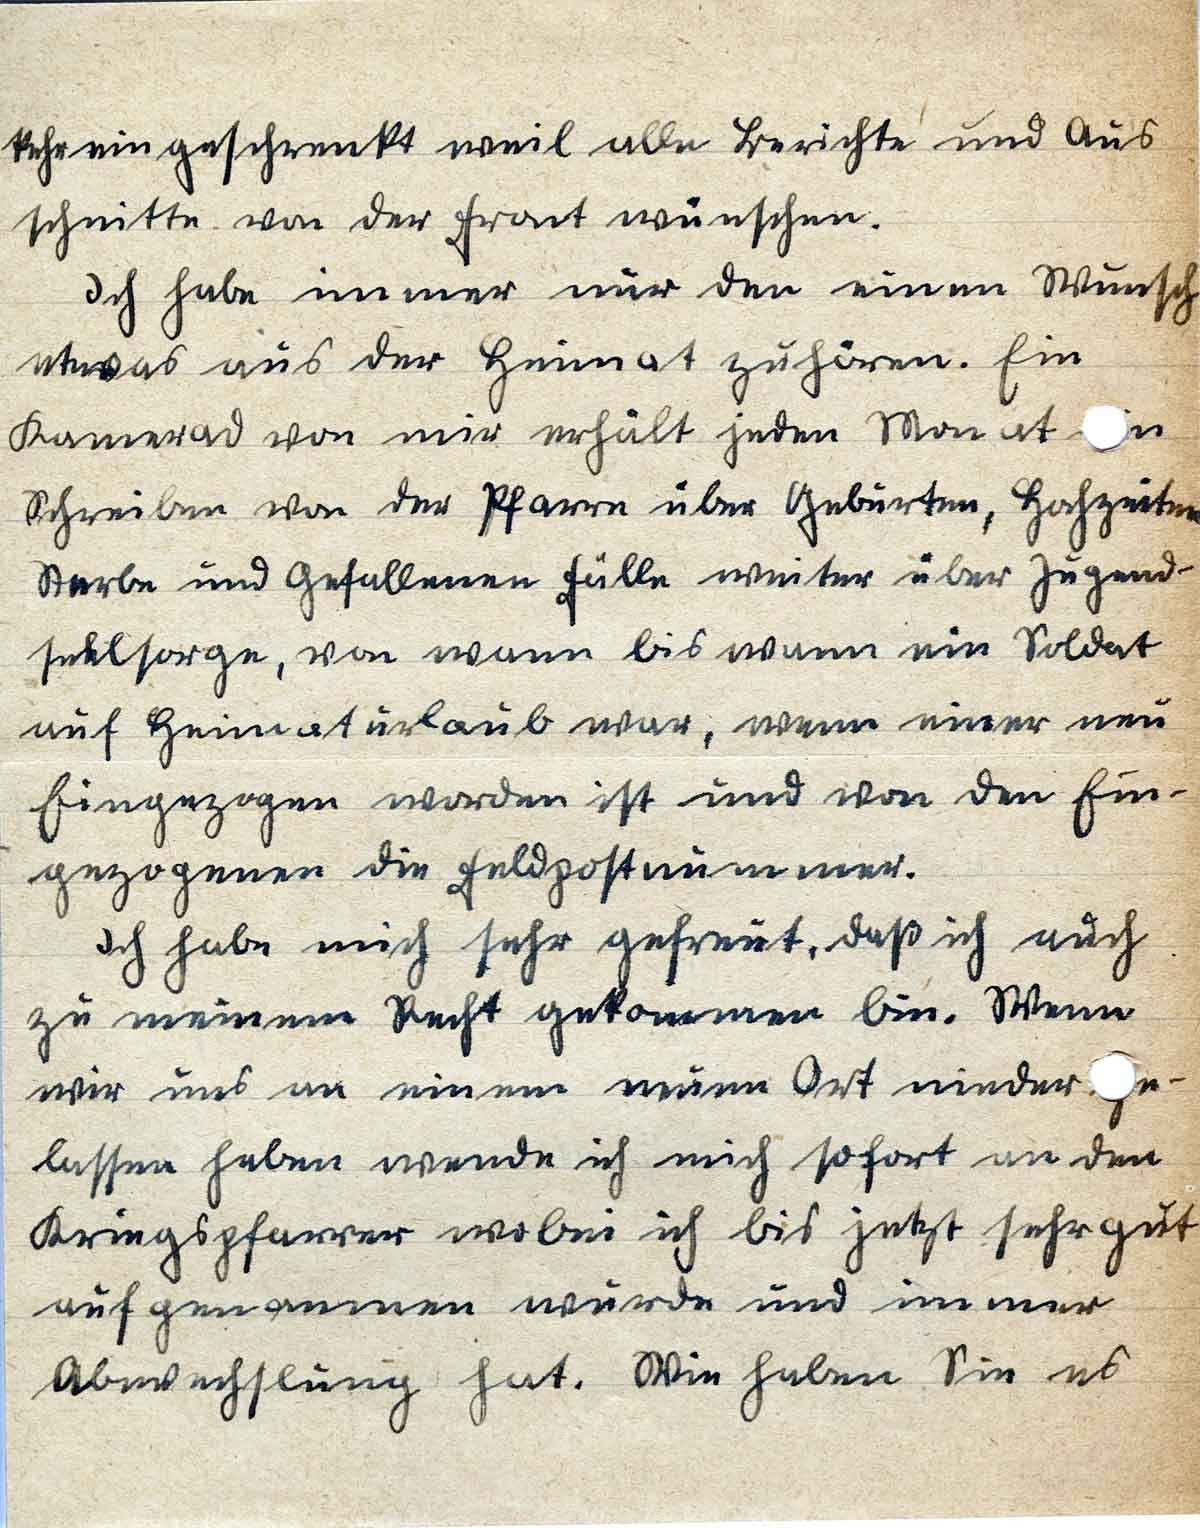 kehr eingeschrenkt weil alle Berichte und Aus
schnitte von der Front wünschen.
Ich habe immer nur den einen Wunsch
etwas aus der Heimat zuhören. Ein
Kamerad von mir erhält jeden Monat ein
Schreiben von der Pfarre über Geburten, Hochzeiten
Sterbe und Gefallenen Fälle weiter über Jugend-
seelsorge, von wann bis wann ein Soldat
auf Heimaturlaub war, wenn einer neu
Eingezogen worden ist und von den Ein-
gezogenen die Feldpostnummer.
Ich habe mich sehr gefreut, daß ich auch
zu meinem Recht gekommen bin. Wenn
wir uns an einem neuen Ort nieder ge-
lassen haben wende ich mich sofort an den
Kriegspfarrer wobei ich bis jetzt sehr gut
aufgenommen wurde und immer
Abwechslung hat. Wie haben Sie es